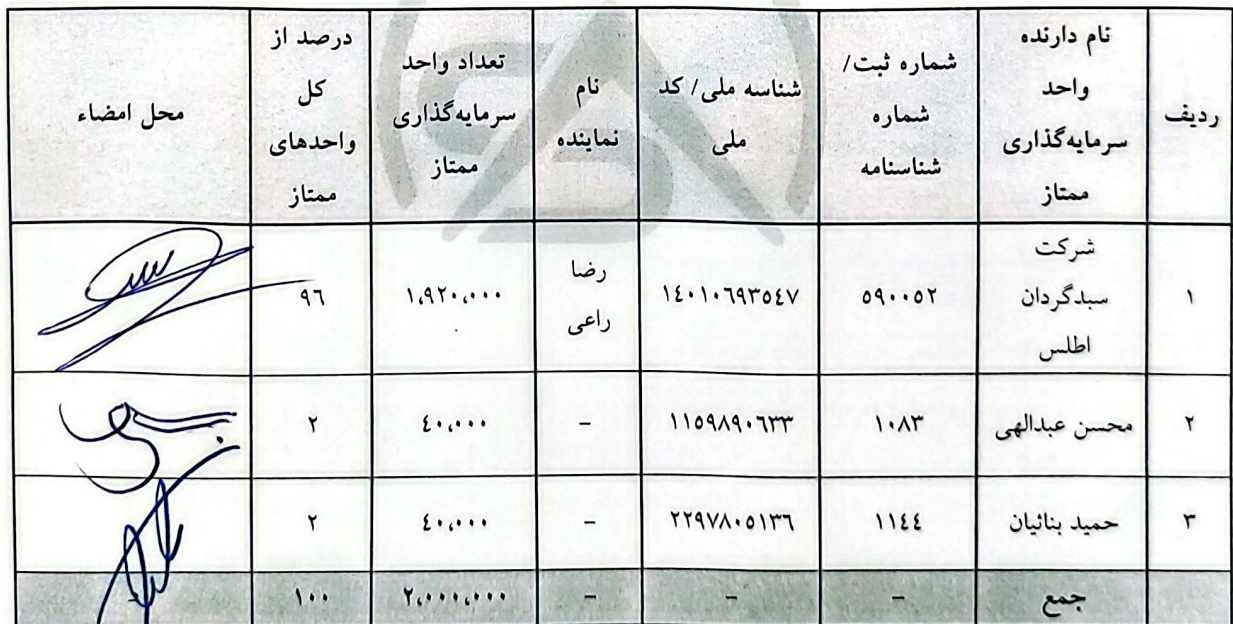 ردیف | نام دارنده واحد سرمایه‌گذاری ممتاز | شماره ثبت/ شماره شناسنامه | شناسه ملی/ کد ملی | نام نماینده | تعداد واحد سرمایه‌گذاری ممتاز | درصد از کل واحدهای ممتاز | محل امضاء
۱ | شرکت سبدگردان اطلس | ۵۹۰۰۵۲ | ۱۴۰۱۰۶۹۳۵۴۷ | رضا راعی | ۱,۹۲۰,۰۰۰ | ۹۶
۲ | محسن عبدالهی | ۱۰۸۳ | ۱۱۵۹۸۹۰۶۳۳ | - | ۴۰,۰۰۰ | ۲
۳ | حمید بنائیان | ۱۱۴۴ | ۲۲۹۷۸۰۵۱۳۶ | - | ۴۰,۰۰۰ | ۲
جمع | - | - | - | ۲,۰۰۰,۰۰۰ | ۱۰۰